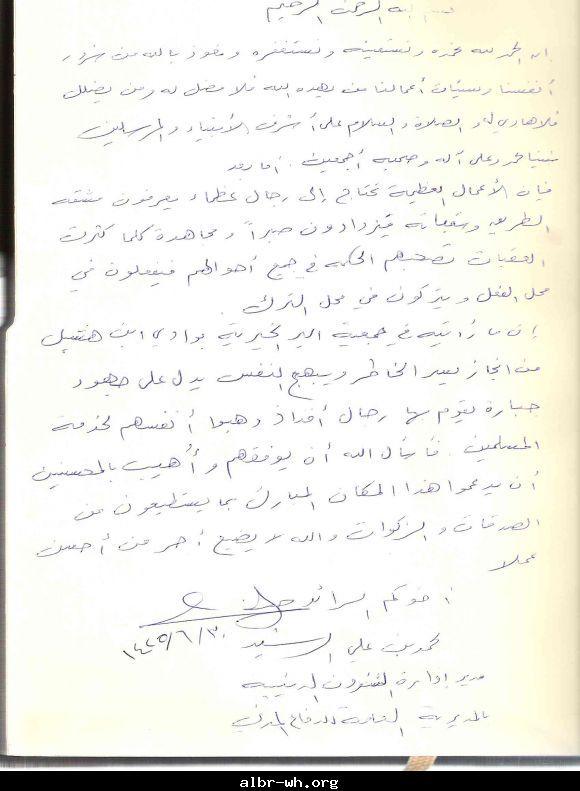 بسم الله الرحمن الرحيم
إن الحمد لله نحمده ونستعينه ونستغفره ونعوذ بالله من شرور
أنفسنا وسيئات أعمالنا من يهده الله فلا مضل له ومن يضلل
فلا هادي له والصلاة والسلام على أشرف الأنبياء والمرسلين
نبينا محمد وعلى آله وصحبه أجمعين . أما بعد
فإن الأعمال العظيمة تحتاج إلى رجال عظماء يعرفون مشقة
الطريق وتبعاته فيزدادون صبراً ومجاهدة كلما كثرت
العقبات تصحبهم الحكمة في جميع أحوالهم فيفعلون في
محل الفعل ويتركون في محل الترك .
إن ما رأيته في جمعية البر الخيرية بوادي ابن هشبل
من انجاز يسر الخاطر ويبهج النفس يدل على جهود
جبارة يقوم بها رجال أفذاذ وهبوا أنفسهم لخدمة
المسلمين . فأسأل الله أن يوفقهم وأهيب بالمحسنين
أن يدعموا هذا المكان المبارك بما يستطيعون من
الصدقات والزكوات والله لا يضيع أجر من أحسن
عملا
أخوكم الرائد
محمد بن علي الرشيد ١٤٢٥/٦/٣٠
مدير إدارة الشئون الدينية
بالمديرية العامة للدفاع المدني
albr-wh.org